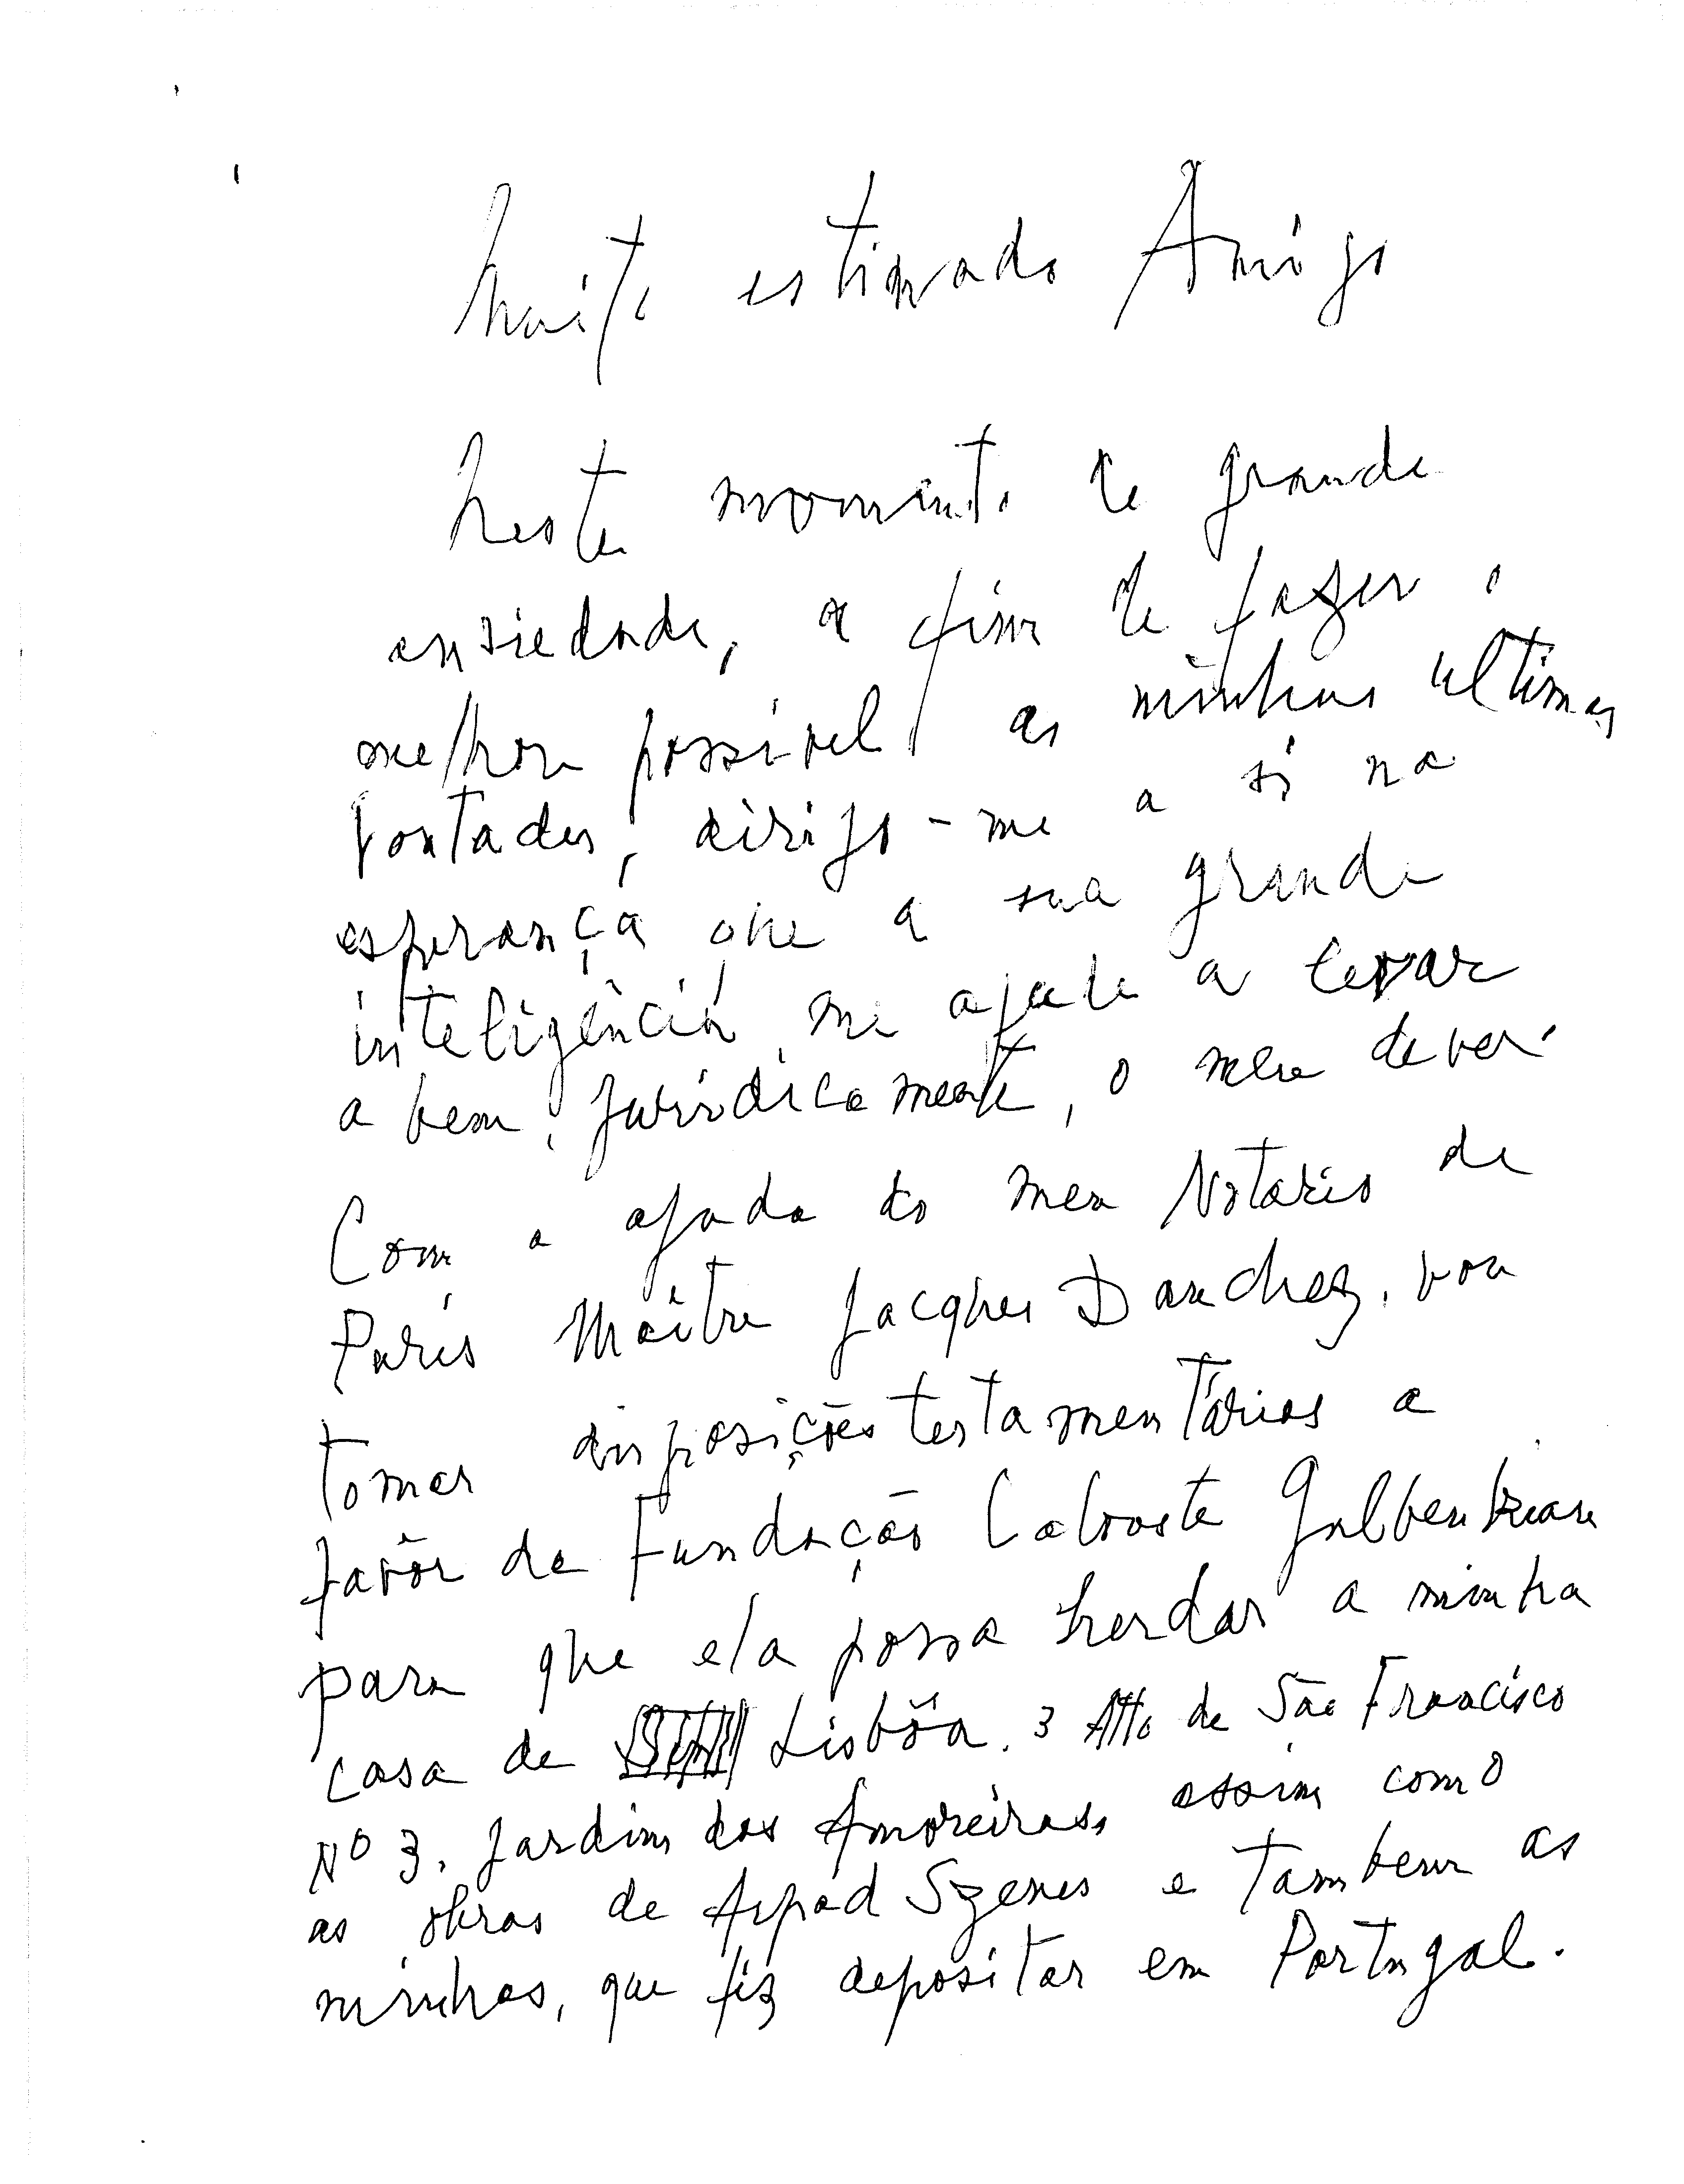 Muito estimado Amigo
Neste momento de grande
ansiedade, a fim de fazer o
melhor possivel as minhas ultimas
vontades, dirijo-me a si na
esperança que a sua grande
inteligência, me ajude a levar
a bem, juridicamente, o meu dever.
Com a ajuda do meu Notario de
Paris Maître Jacques Dauchez, vou
tomar disposições testamentárias a
favôr da Fundação Calouste Gulbenkian
para que ela possa herdar a minha
casa de Lisbôa. 3 Alto de São Francisco
Nº 3. Jardim das Amoreiras, assim como
as obras de Arpad Szenes e tambem as
minhas, que fiz depositar em Portugal.